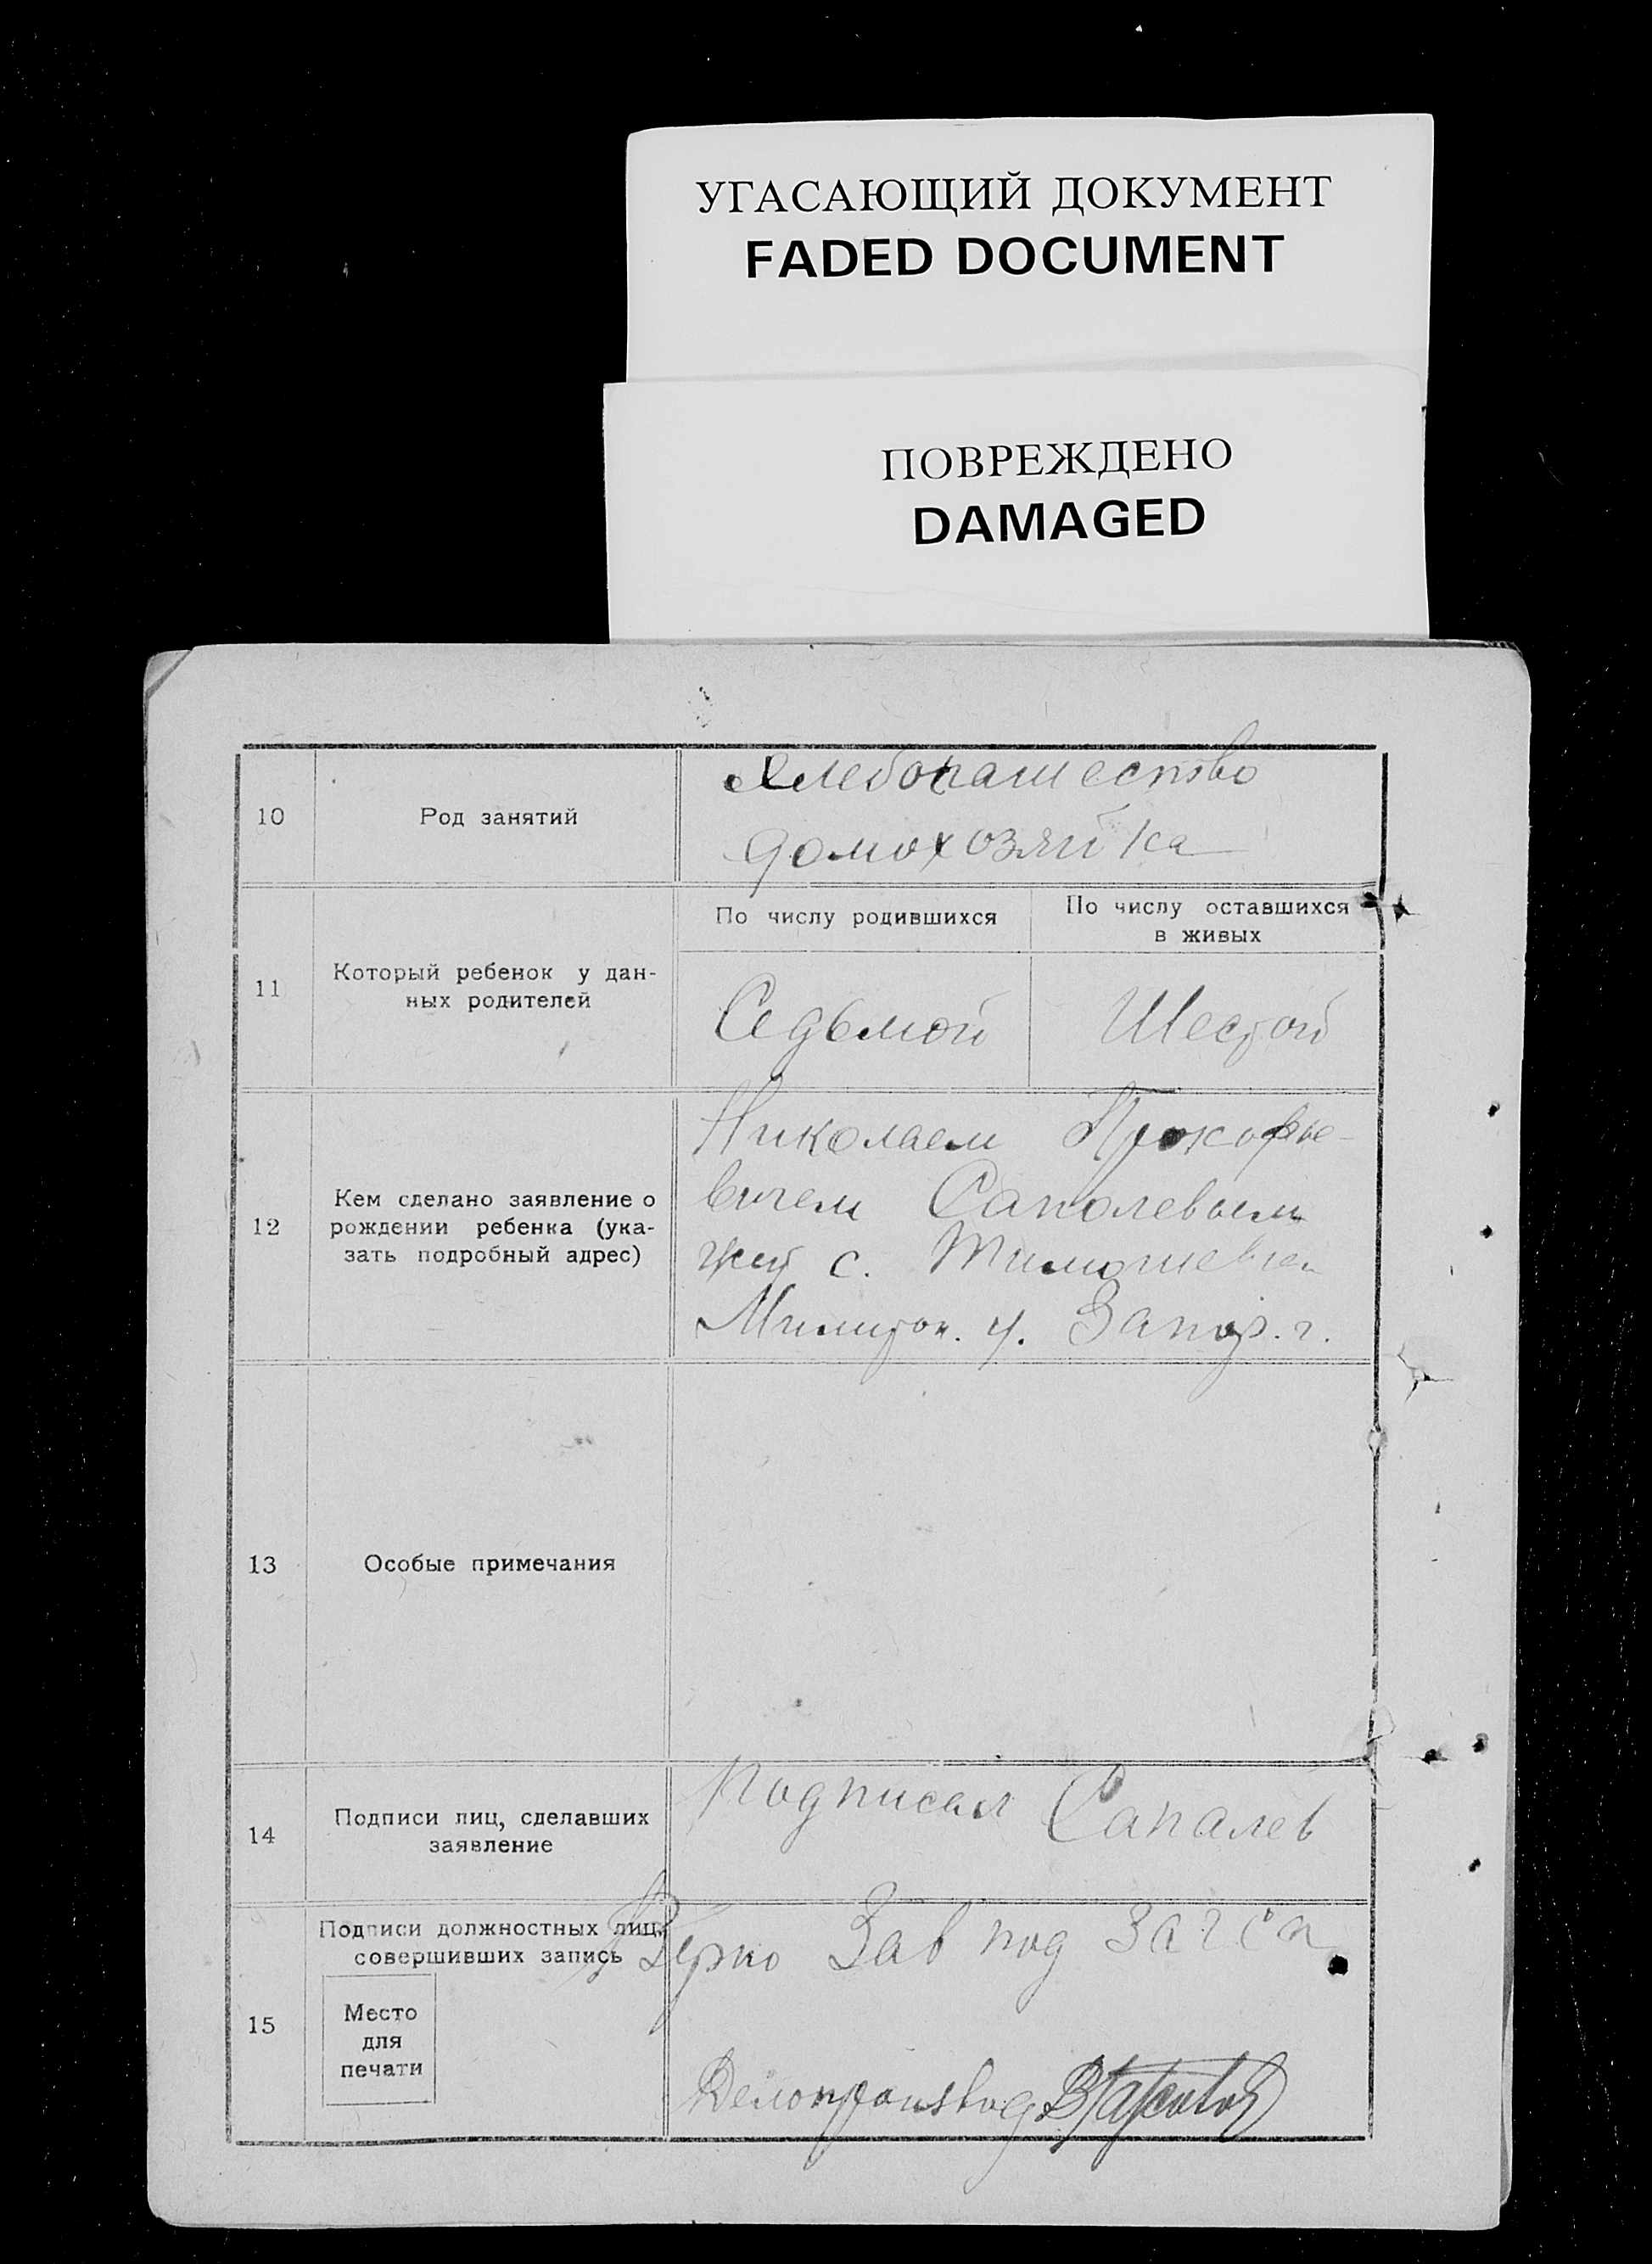 УГАСАЮЩИЙ ДОКУМЕНТ
FADED DOCUMENT
ПОВРЕЖДЕНО
DAMAGED
10
Род занятий
Хлебопашество
домохозяйка
11
Который ребенок у дан-
ных родителей
По числу родившихся
По числу оставшихся
в живых
Седьмой
Шестой
12
Кем сделано заявление о
рождении ребенка (ука-
зать подробный адрес)
Николаем Прокофье-
вичем Саполевым
жит с.
Мелитоп. у. Запор. г.
13
Особые примечания
14
Подписи лиц, сделавших
заявление
Подписал Сапалев
15
Подписи должностных лиц,
совершивших запись
Место
для
печати
Верно Зав под Загса
Делопроизвод